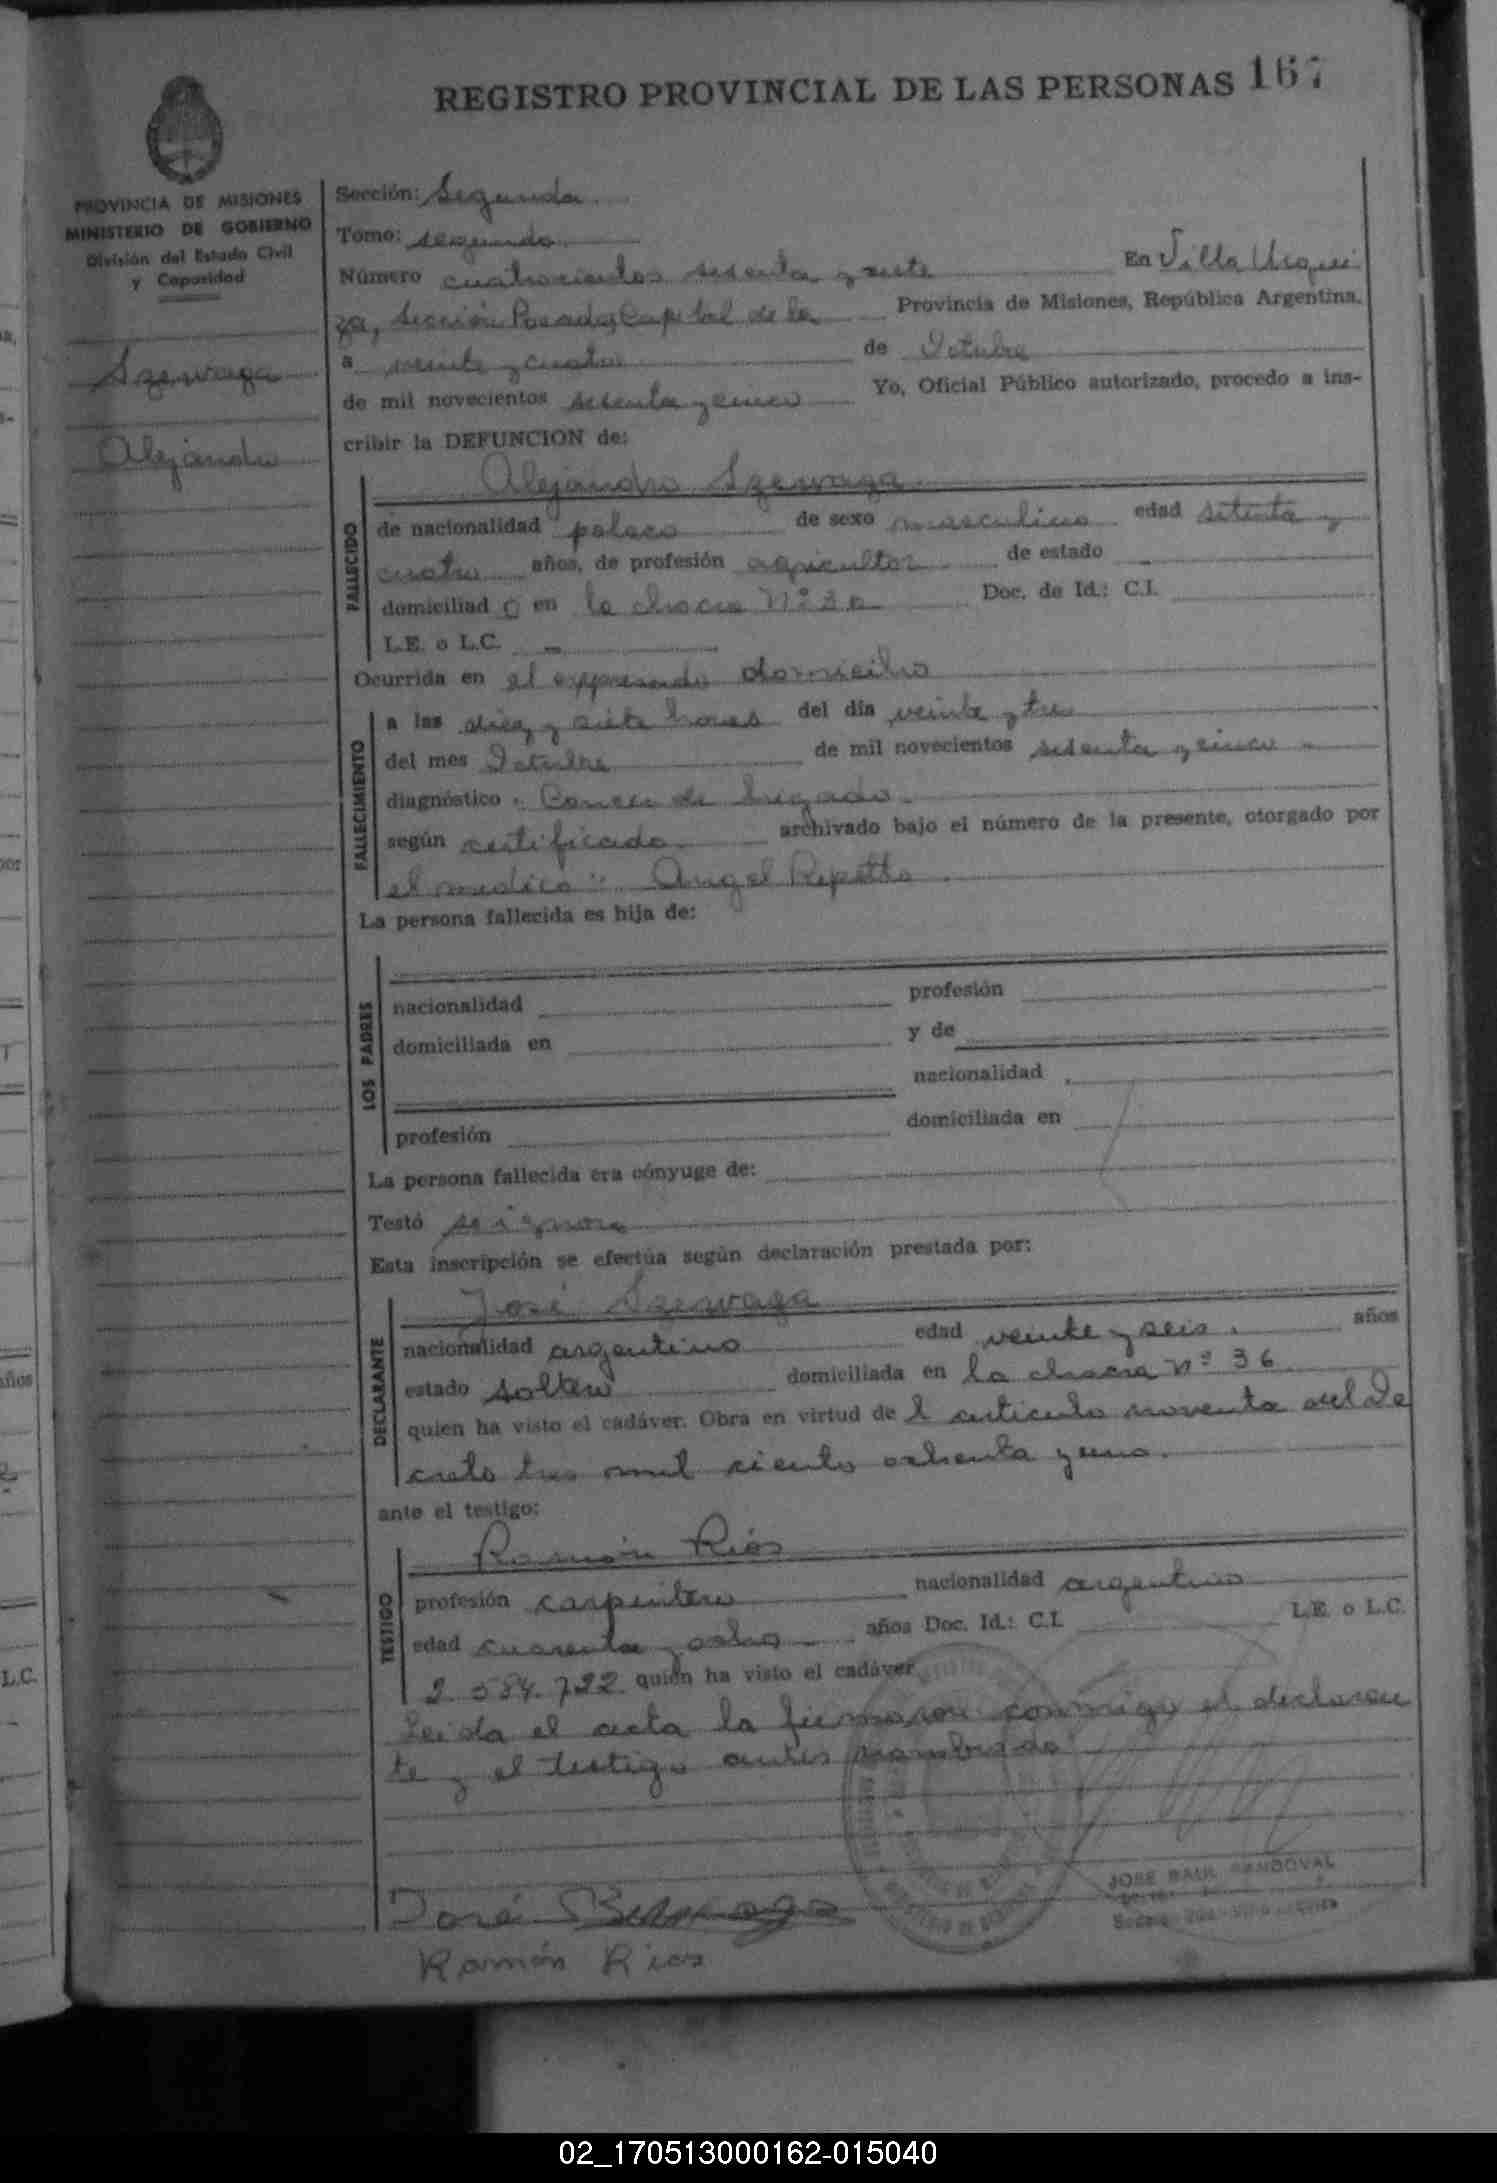 REGISTRO PROVINCIAL DE LAS PERSONAS 167
PROVINCIA DE MISIONES
MINISTERIO DE GOBIERNO
División del Estado Civil
y Capacidad
Szewaga
Alejandro
Sección: Segunda
Tomo: segundo
Número cuatrocientos sesenta y siete En Villa Urqui
za, Sección Posadas Capital de la Provincia de Misiones, República Argentina,
a veinte y cuatro de Octubre
de mil novecientos setenta y cinco Yo, Oficial Público autorizado, procedo a ins-
cribir la DEFUNCION de:
Alejandro Szewaga
FALLECIDO
de nacionalidad polaco de sexo masculino edad setenta y
cuatro años, de profesión agricultor de estado
domiciliad o en la chacra Nº 36 Doc. de Id.: C.I.
L.E. o L.C.
Ocurrida en el expresado domicilio
FALLECIMIENTO
a las diez y siete horas del día veinte y tres
del mes Octubre de mil novecientos setenta y cinco
diagnóstico: Cancer de higado
según certificado archivado bajo el número de la presente, otorgado por
el medico: Angel Repetto
La persona fallecida es hija de:
LOS PADRES
nacionalidad profesión
domiciliada en y de
nacionalidad
profesión domiciliada en
La persona fallecida era cónyuge de:
Testó se ignora
Esta inscripción se efectúa según declaración prestada por:
José Szewaga
DECLARANTE
nacionalidad argentino edad veinte y seis años
estado soltero domiciliada en la chacra nº 36
quien ha visto el cadáver. Obra en virtud de l articulo noventa del De
creto tres mil ciento ochenta y uno.
ante el testigo:
Ramón Ríos
TESTIGO
profesión carpintero nacionalidad argentino
edad cuarenta y ocho años Doc. Id.: C.I. L.E. o L.C.
2.584.722 quien ha visto el cadáver
Leida el acta la firmaron conmigo el declaran
te y el testigo antes nombrado
JOSE RAUL SANDOVAL
José
Ramón Rios
02_170513000162-015040